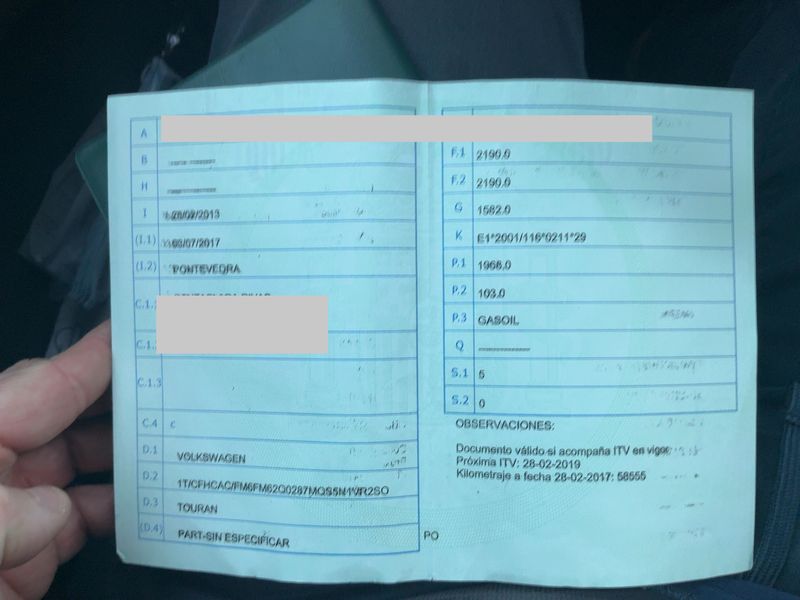 A
B --------- ---------
H ------------------
I 28/02/2013
(I.1) 03/07/2017
(I.2) PONTEVEDRA
C.1.
C.1.
C.1.3
C.4 c
D.1 VOLKSWAGEN
D.2 1T/CFHCAC/FM6FM62Q0287MQS5N1VR2SO
D.3 TOURAN
(D.4) PART-SIN ESPECIFICAR
PO
F.1 2190.0
F.2 2190.0
G 1582.0
K E1*2001/116*0211*29
P.1 1968.0
P.2 103.0
P.3 GASOIL
Q ------------------
S.1 5
S.2 0
OBSERVACIONES:
Documento válido si acompaña ITV en vigor.
Próxima ITV: 28-02-2019
Kilometraje a fecha 28-02-2017: 58555